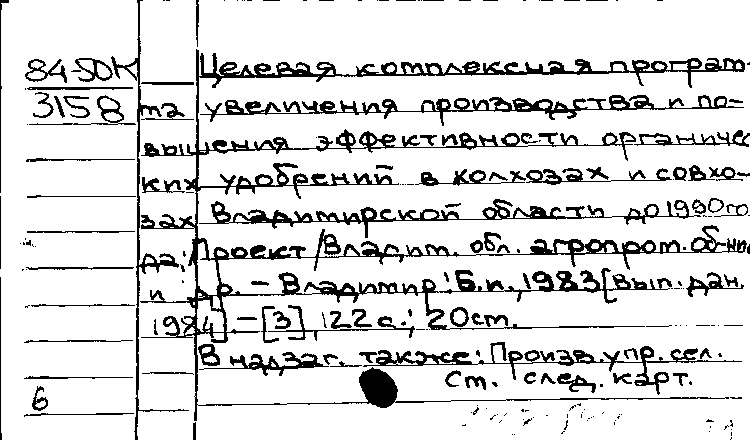 84-50К Целевая комплексная програм-
3158 ма увеличения производства и по-
вышения эффективности органичес
ких удобрений в колхозах и совхо-
зах Владимирской области до 1990 го
да: Проект / Владим. обл. агропром. об-ние
и др. - Владимир: Б.и., 1983 [вып. дан.
1984]. - [3], 122 с.; 20 см.
В надзаг. также: Произв. упр. сел.
См. след. карт.
6